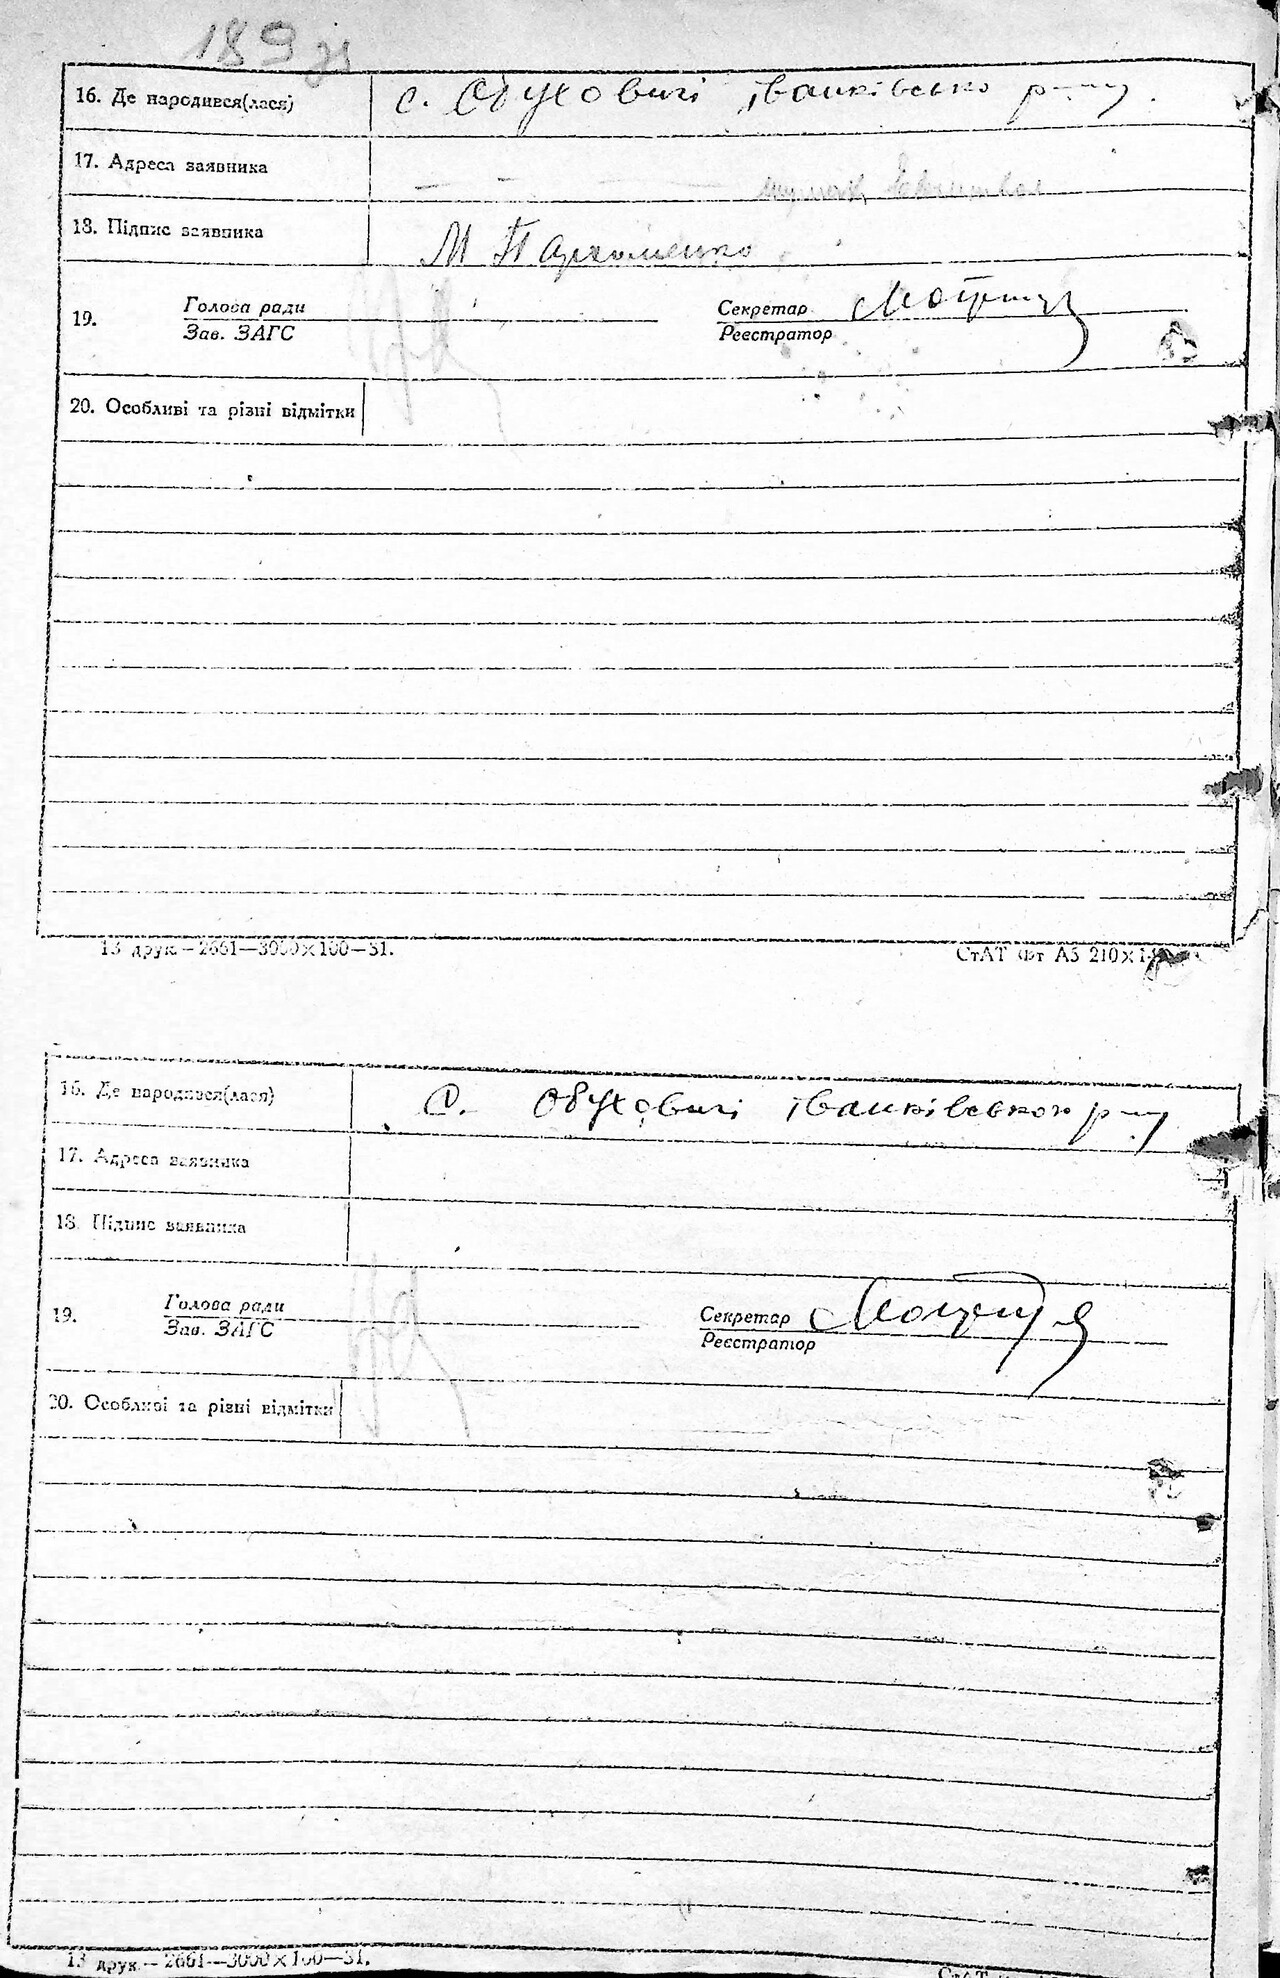 189 зв
16. Де народився(лася) с. Обуховичі Іванківсько р-ну.
17. Адреса заявника — — — —
18. Підпис заявника М Пархоменко
19. Голова ради Секретар
Зав. ЗАГС Реєстратор
20. Особливі та різні відмітки
13 друк.—2661—3000×100—31. СтАТ Фт А5 210×148
16. Де народився(лася) с. Обуховичі Іванківського р-ну
17. Адреса заявника
18. Підпис заявника
19. Голова ради Секретар
Зав. ЗАГС Реєстратор
20. Особливі та різні відмітки
13 друк.—2661—3000×100—31. СтАТ